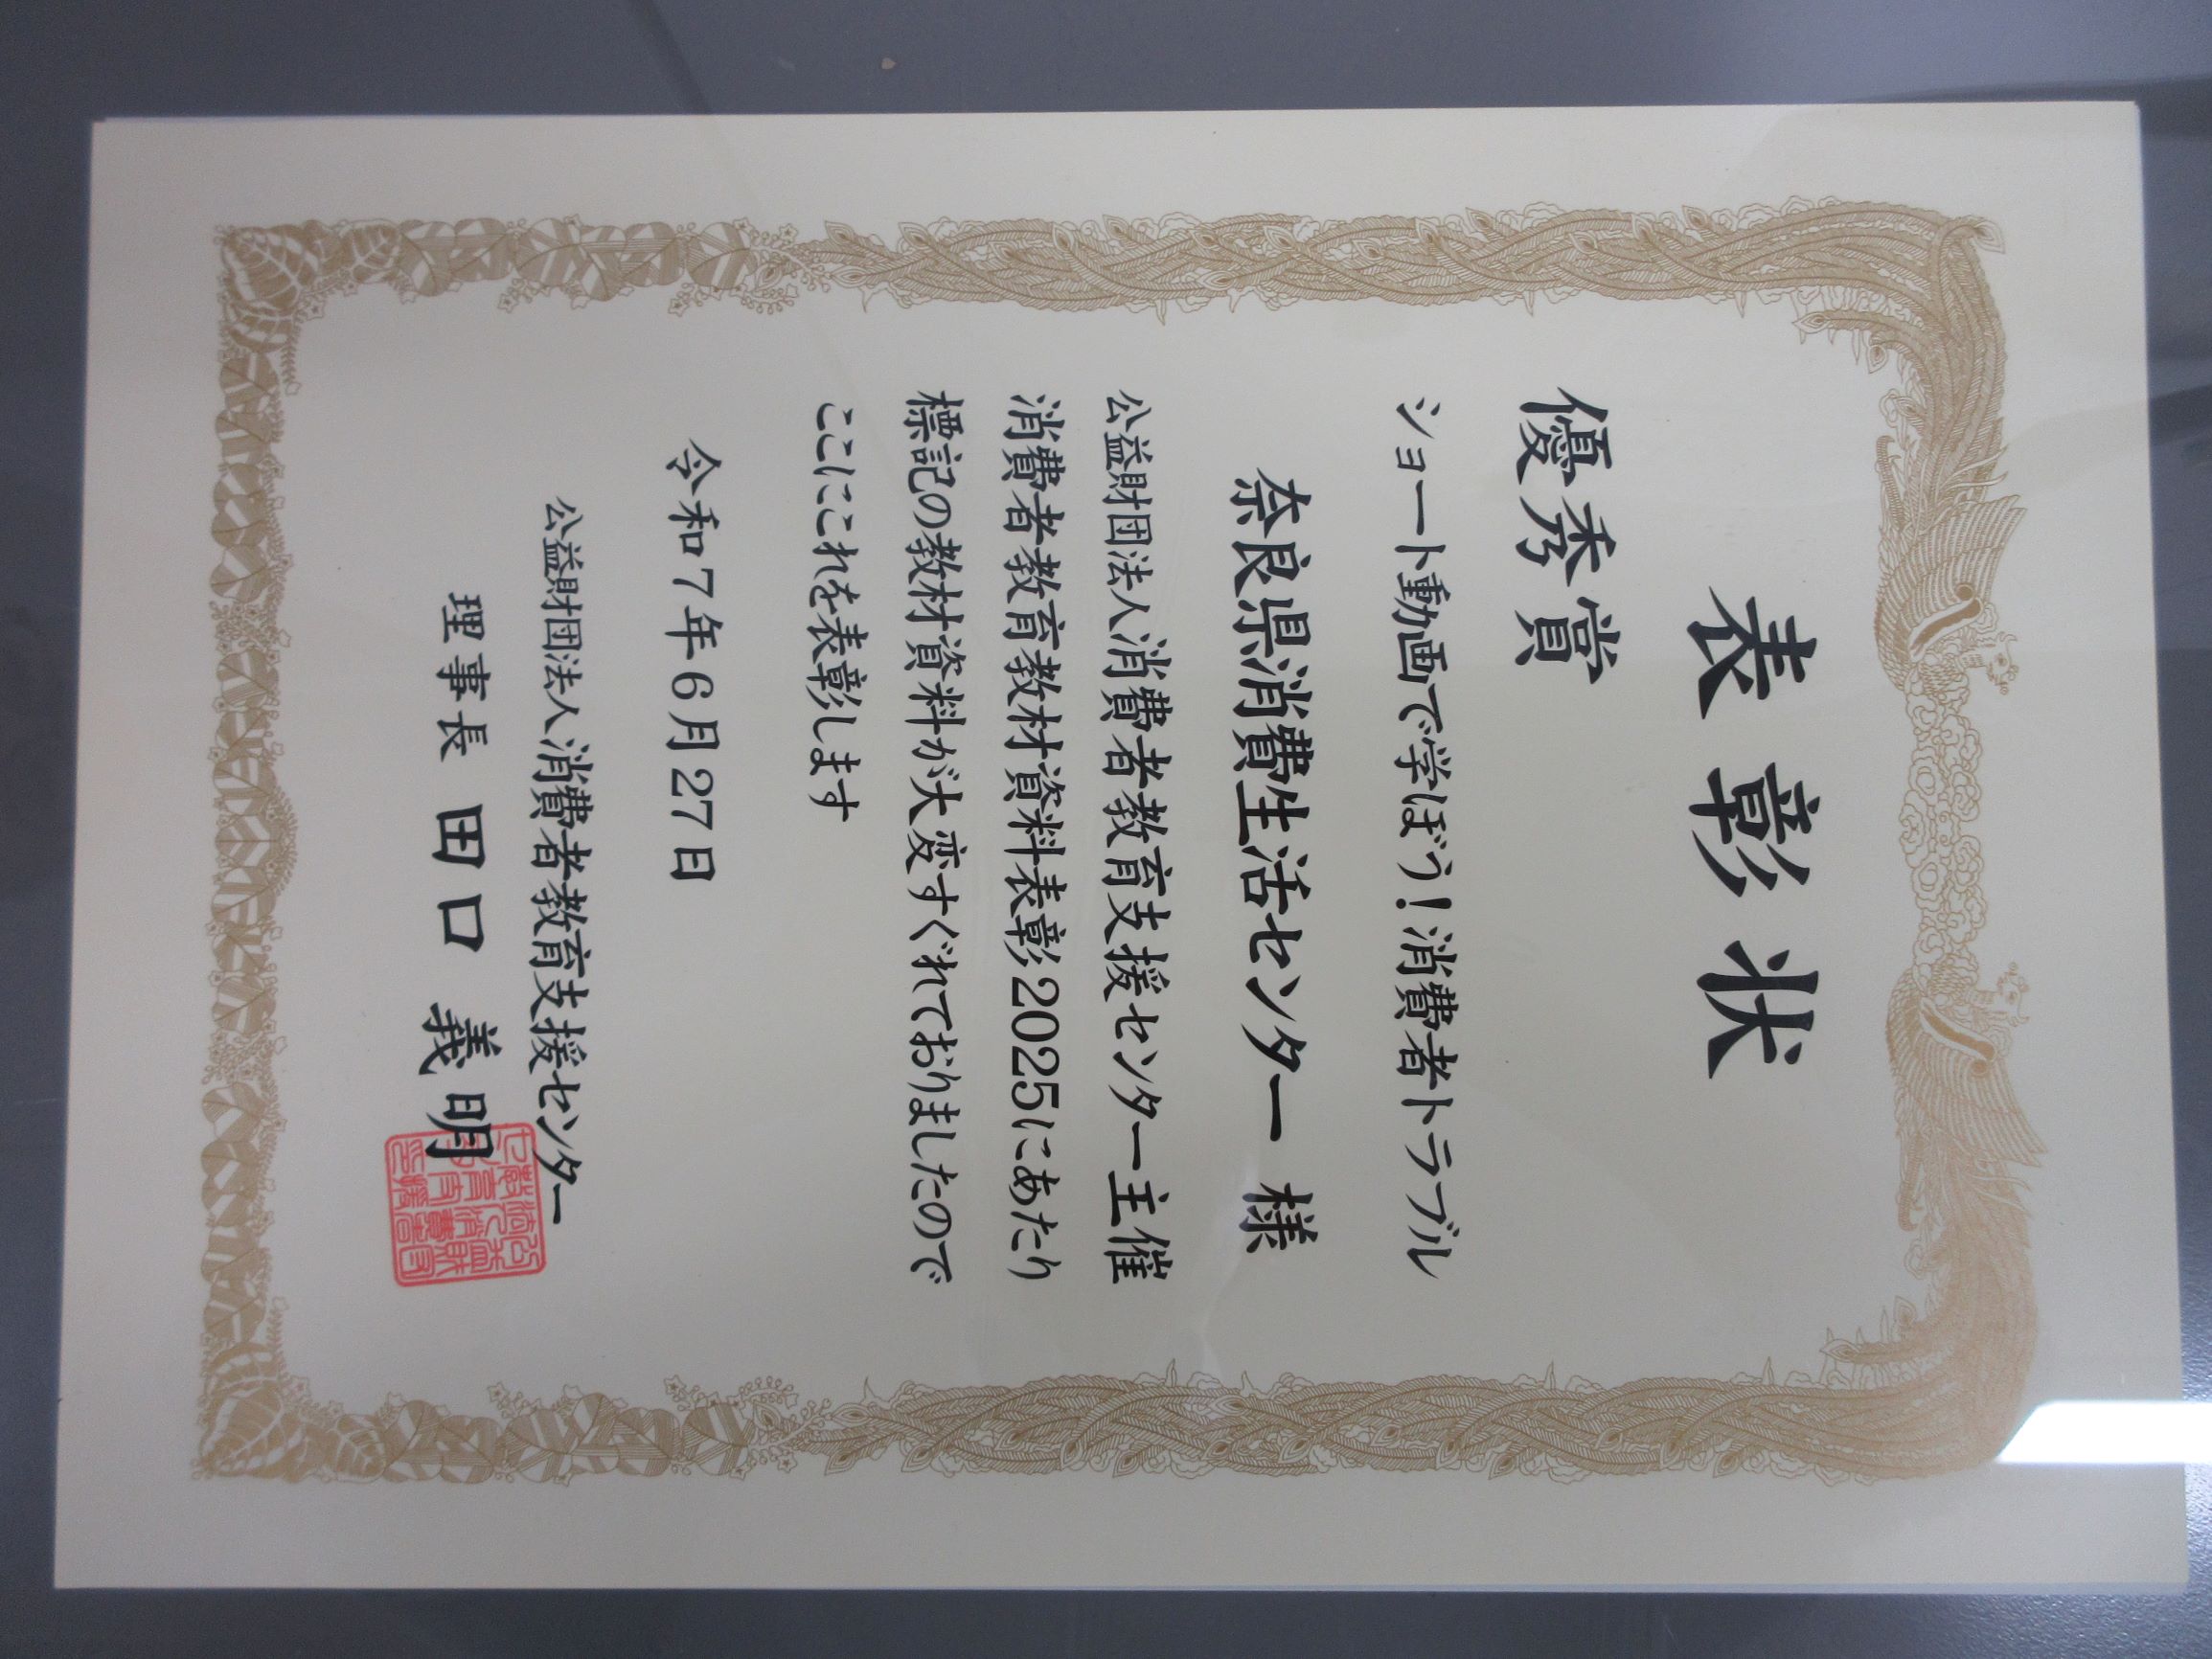 表彰状
優秀賞
ショート動画で学ぼう！消費者トラブル
奈良県消費生活センター 様
公益財団法人消費者教育支援センター主催
消費者教育教材資料表彰2025にあたり
標記の教材資料が大変すぐれておりましたので
ここにこれを表彰します
令和7年6月27日
公益財団法人消費者教育支援センター
理事長 田口 義明